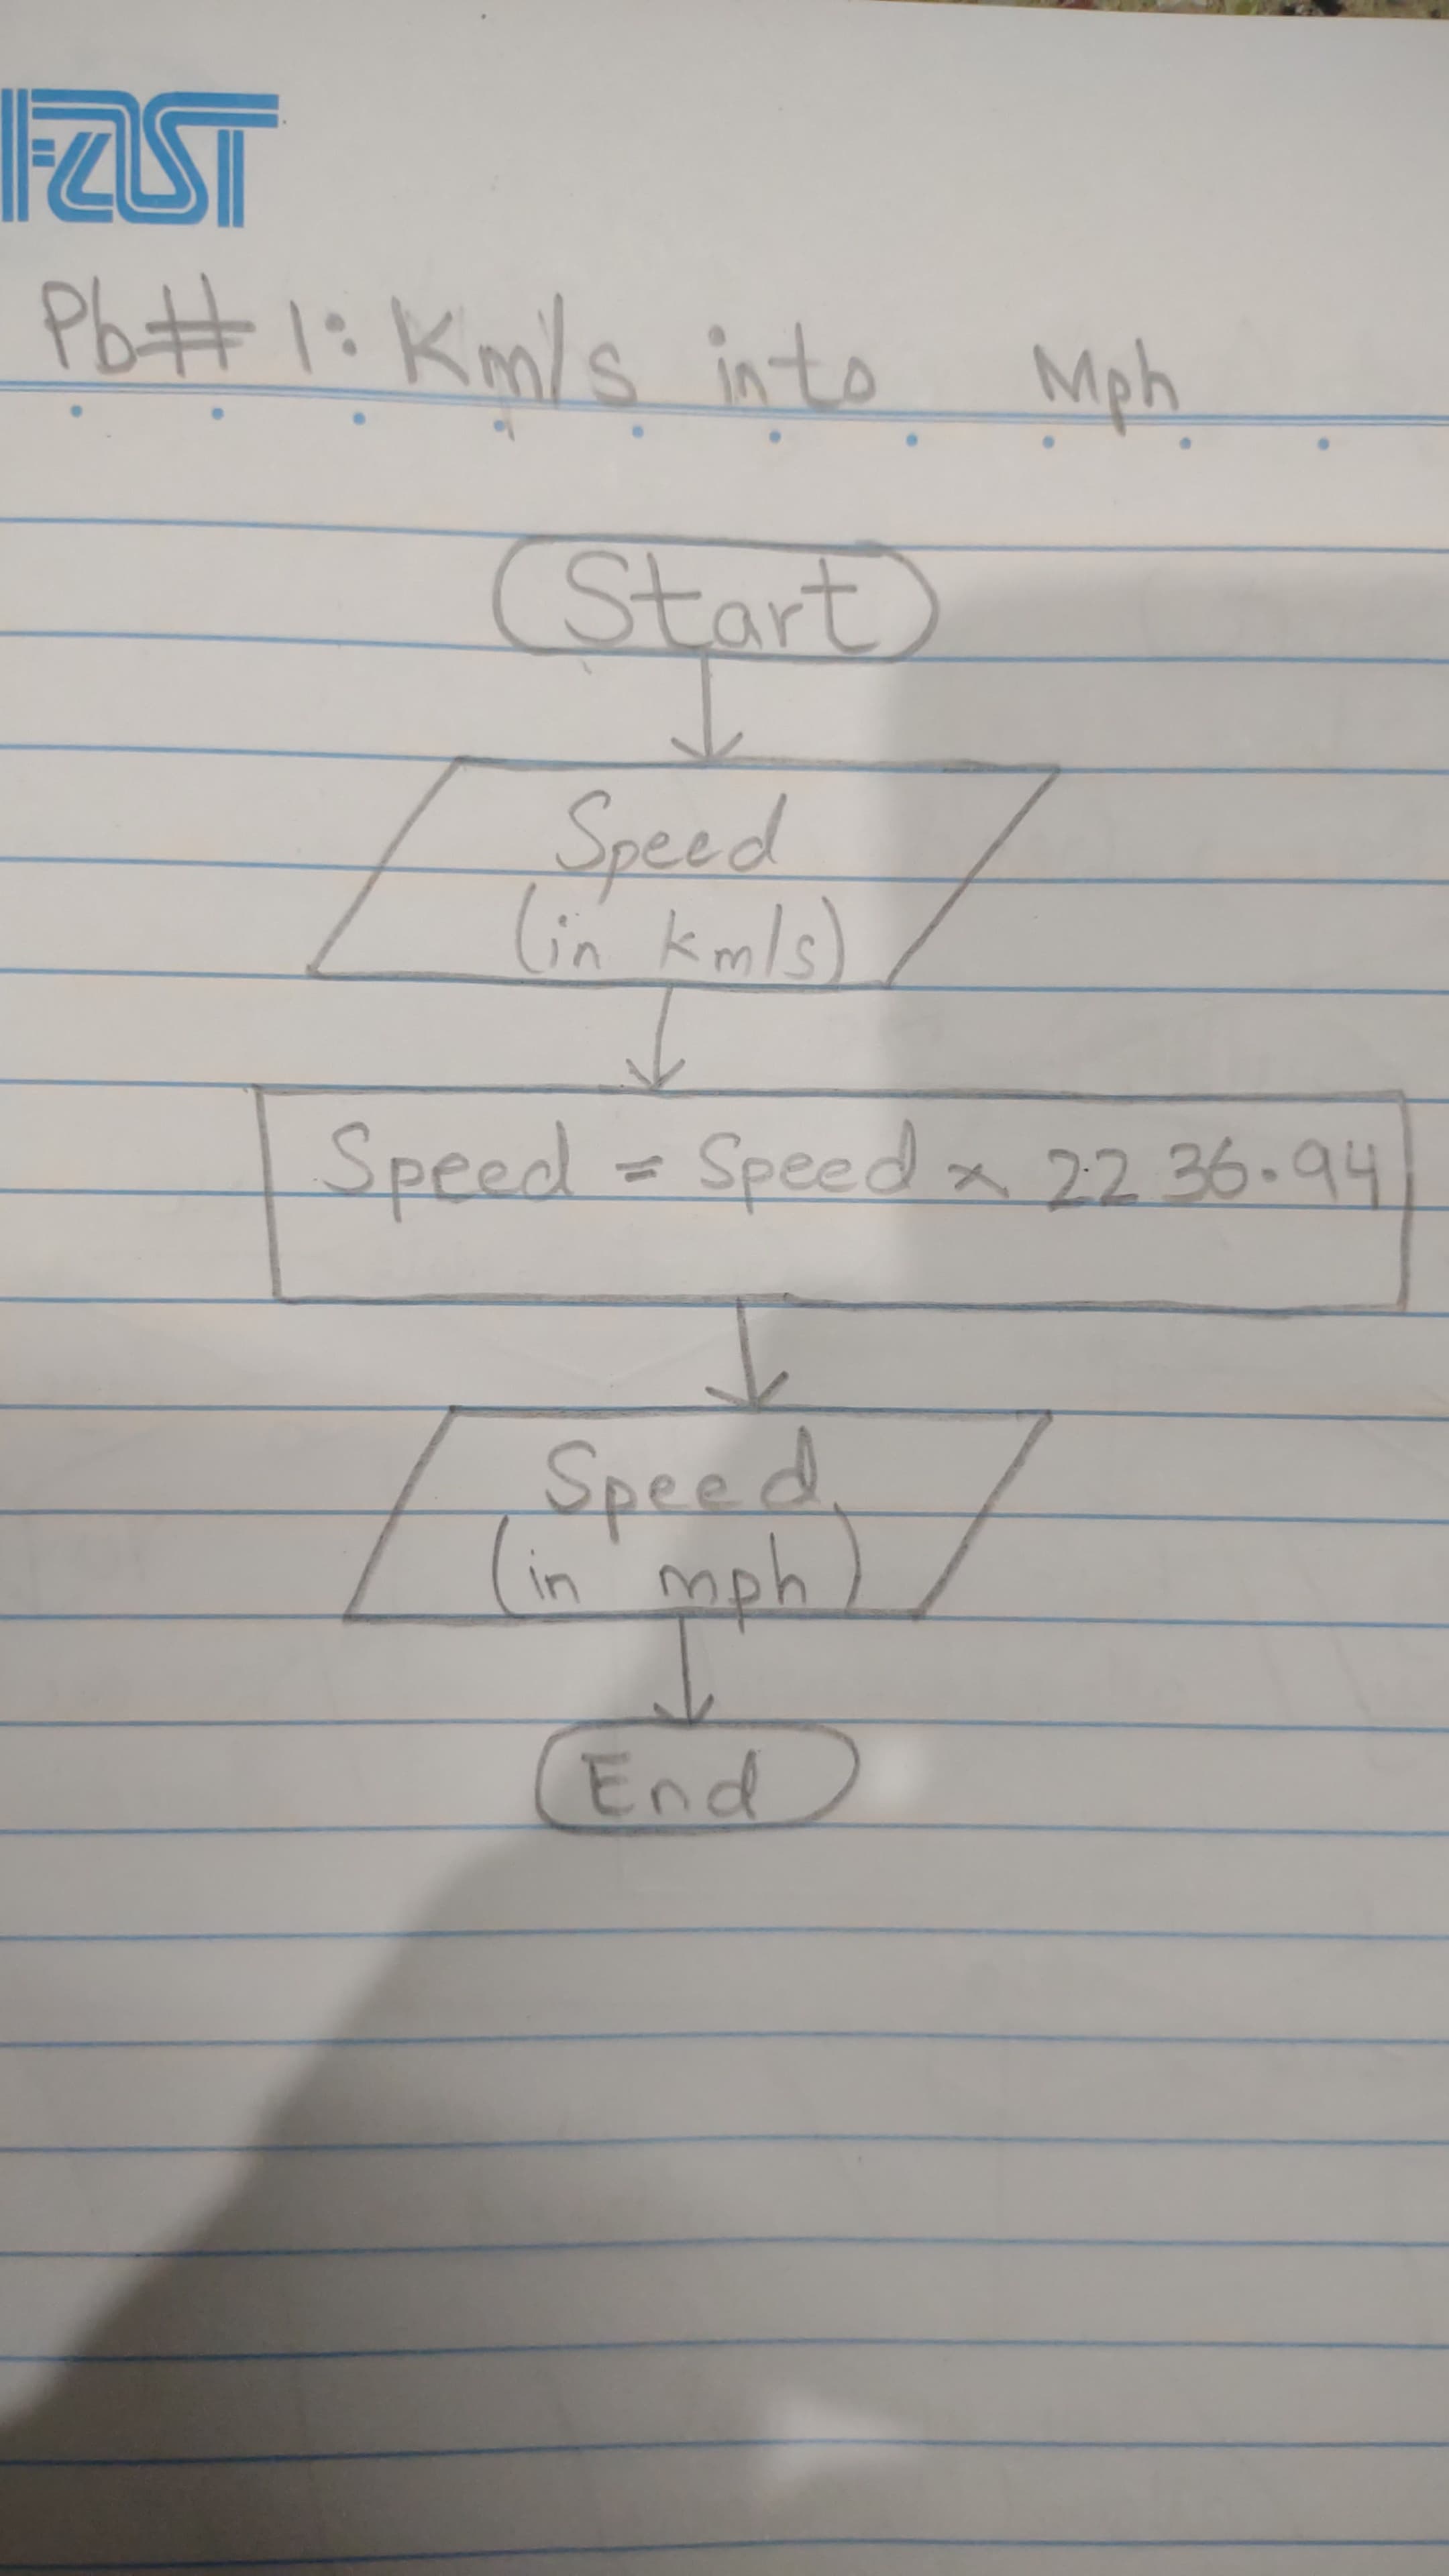 FAST
Pb# 1: Km/s into Mph
Start
Speed
(in km/s)
Speed = Speed × 2236.94
Speed
(in mph)
End